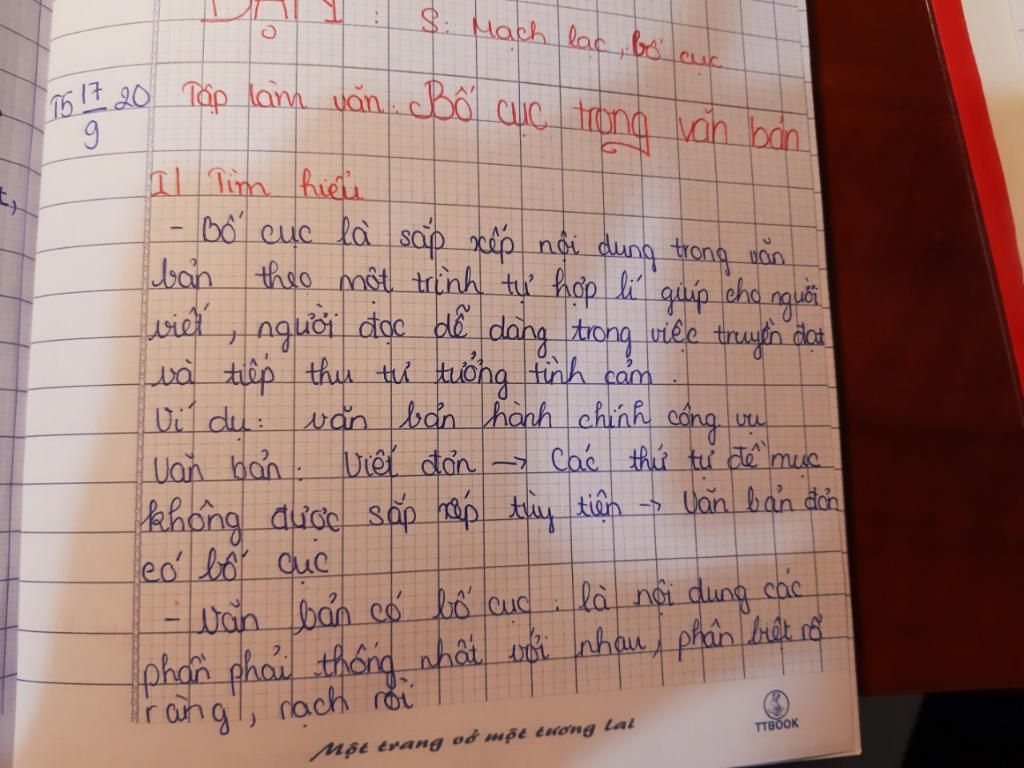 S: Mạch lạc, bố cục
T5 17/9 20
Tập làm văn. Bố cục trong văn bản
I| Tìm hiểu
- Bố cục là sắp xếp nội dung trong văn
bản theo một trình tự hợp lí giúp cho người
viết, người đọc dễ dàng trong việc truyền đạt
và tiếp thu tư tưởng tình cảm.
Ví dụ: văn bản hành chính công vụ
Văn bản: Viết đơn → Các thứ tự đề mục
không được sắp xếp tùy tiện → Văn bản đơn
có bố cục
- Văn bản có bố cục: là nội dung các
phần phải thống nhất với nhau, phân biệt rõ
ràng, rạch ròi
Một trang vở một tương lai
TTBOOK